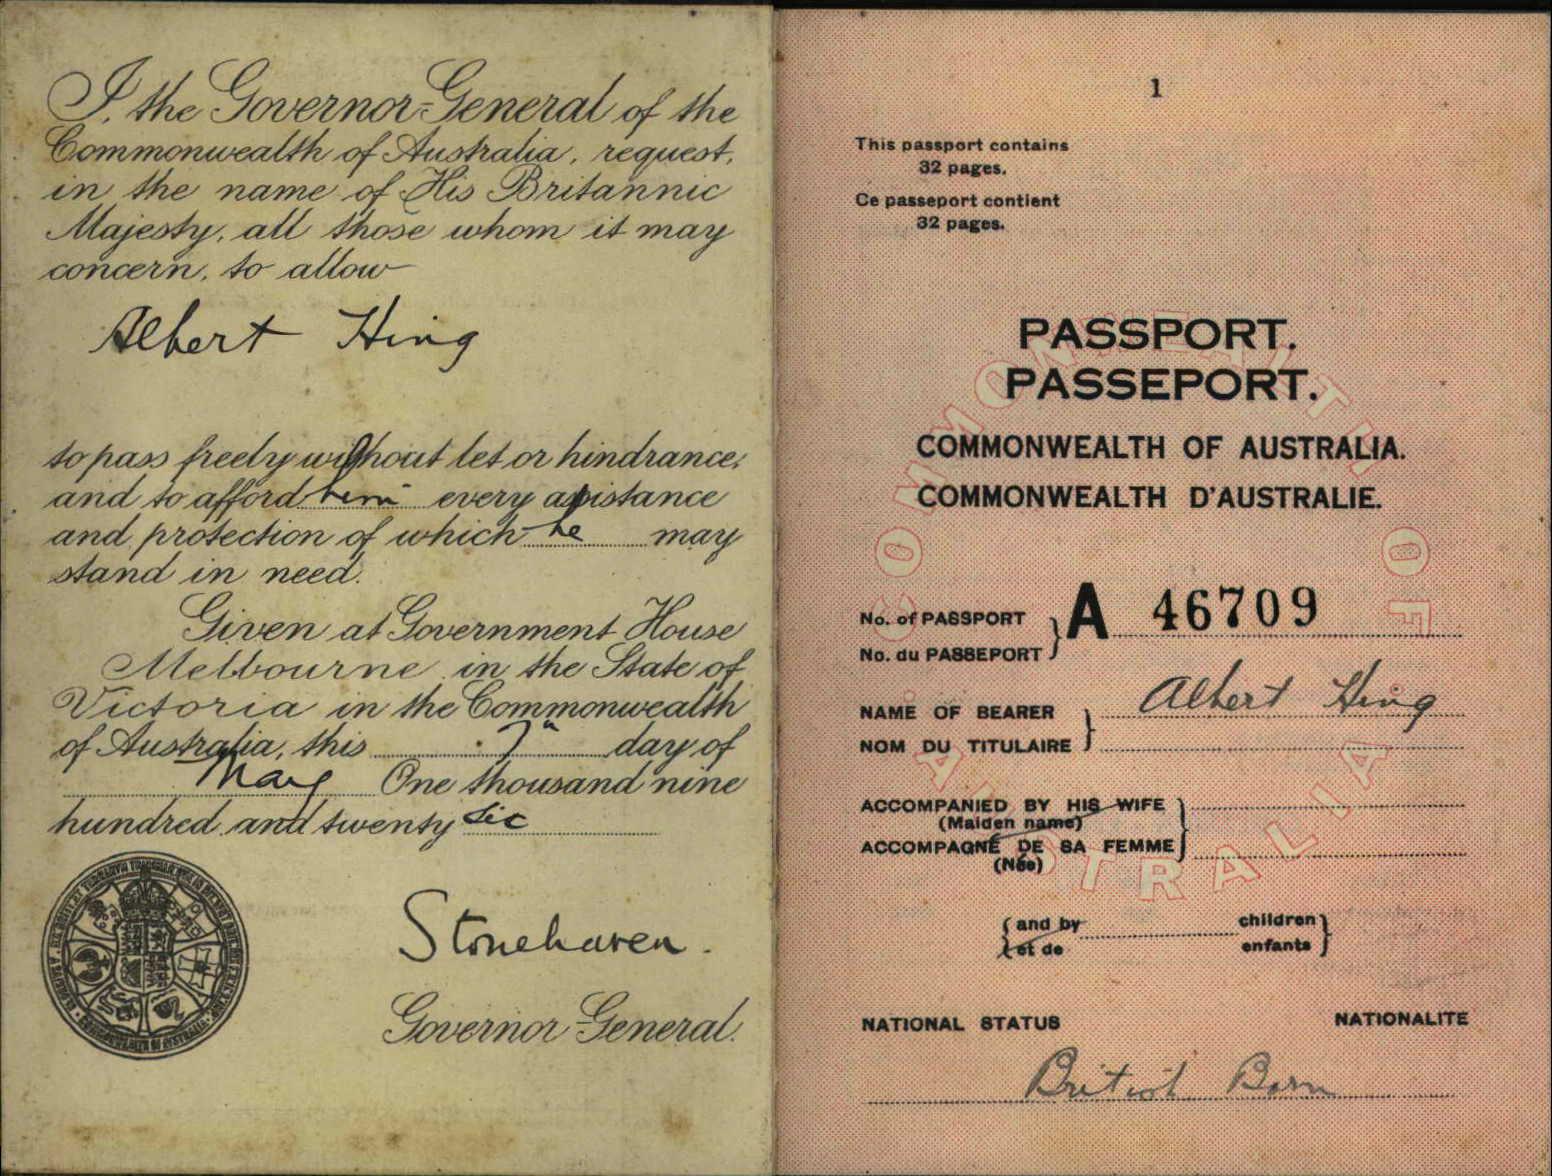 I, the Governor-General of the
Commonwealth of Australia, request,
in the name of His Britannic
Majesty, all those whom it may
concern, to allow
Albert Hing
to pass freely without let or hindrance,
and to afford him every assistance
and protection of which he may
stand in need.
Given at Government House
Melbourne in the State of
Victoria in the Commonwealth
of Australia, this 7th day of
May One thousand nine
hundred and twenty six
Stonehaven.
Governor-General.
1
This passport contains
32 pages.
Ce passeport contient
32 pages.
PASSPORT.
PASSEPORT.
COMMONWEALTH OF AUSTRALIA.
COMMONWEALTH D'AUSTRALIE.
COMMONWEALTH OF AUSTRALIA
No. of PASSPORT A 46709
No. du PASSEPORT
NAME OF BEARER Albert Hing
NOM DU TITULAIRE
ACCOMPANIED BY HIS WIFE
(Maiden name)
ACCOMPAGNÉ DE SA FEMME
(Née)
and by children
et de enfants
NATIONAL STATUS NATIONALITE
British Born